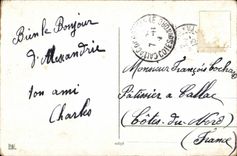 Bien le Bonjour
d'Alexandrie
ton ami
Charles
Monsieur François
Pâtissier à Callac
(Côtes-du-Nord)
(France)